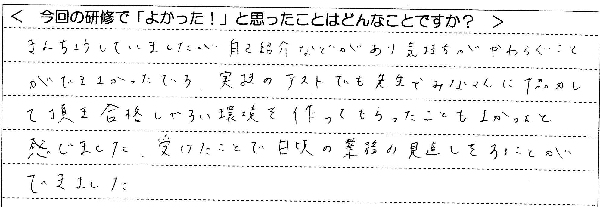 < 今回の研修で「よかった！」と思ったことはどんなことですか？ >
きんちょうしていましたが 自己紹介などがあり気持ちがやわらぐこと
ができよかったです 実技のテストでも先生やみなさんに協力し
て頂き合格しやすい環境を作ってもらったこともよかったと
感じました、受けたことで日頃の業務の見直しをすることが
できました